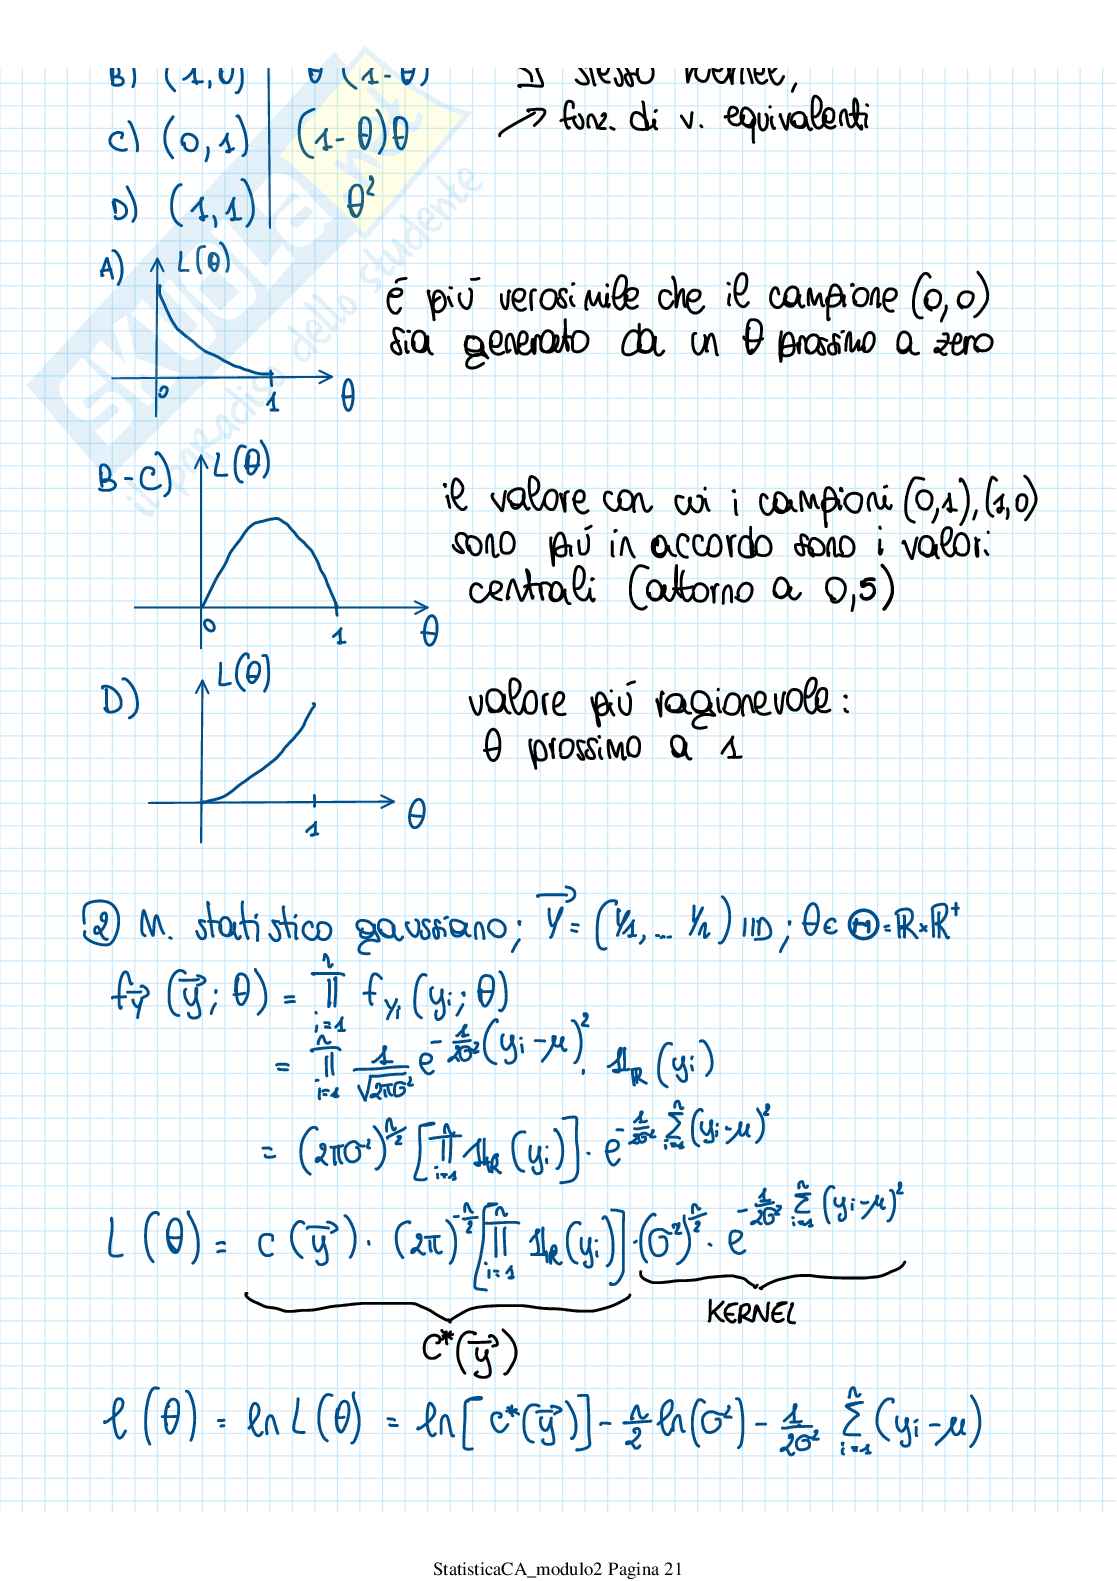 B) (1,0) θ (1-θ) stesso kernel,
→ funz. di v. equivalenti
C) (0,1) (1-θ)θ
D) (1,1) θ²
SKUOLA.net
il paradiso dello studente
A) L(θ)
0 1 θ
é piú verosimile che il campione (0,0)
sia generato da un θ prossimo a zero
B-C) L(θ)
0 1 θ
il valore con cui i campioni (0,1),(1,0)
sono piú in accordo sono i valori
centrali (attorno a 0,5)
D) L(θ)
1 θ
valore piú ragionevole:
θ prossimo a 1
② M. statistico gaussiano; Y⃗ = (Y₁,... Yₙ) IID; θ∈ Θ=ℝ×ℝ⁺
f_Y⃗ (y⃗; θ) = ∏_{i=1}^{n} f_{Yᵢ} (yᵢ; θ)
= ∏_{i=1}^{n} 1/√(2πσ²) e^{-1/(2σ²) (yᵢ-μ)²} · 𝟙_ℝ (yᵢ)
= (2πσ²)^{n/2} [∏_{i=1}^{n} 𝟙_ℝ (yᵢ)] · e^{-1/(2σ²) Σ_{i=1}^{n} (yᵢ-μ)²}
L (θ) = c (y⃗) · (2π)^{-n/2} [∏_{i=1}^{n} 𝟙_ℝ (yᵢ)] · (σ²)^{n/2} · e^{-1/(2σ²) Σ_{i=1}^{n} (yᵢ-μ)²}
C*(y⃗) KERNEL
ℓ (θ) = ln L (θ) = ln [ c*(y⃗)] - n/2 ln(σ²) - 1/(2σ²) Σ_{i=1}^{n} (yᵢ-μ)
StatisticaCA_modulo2 Pagina 21